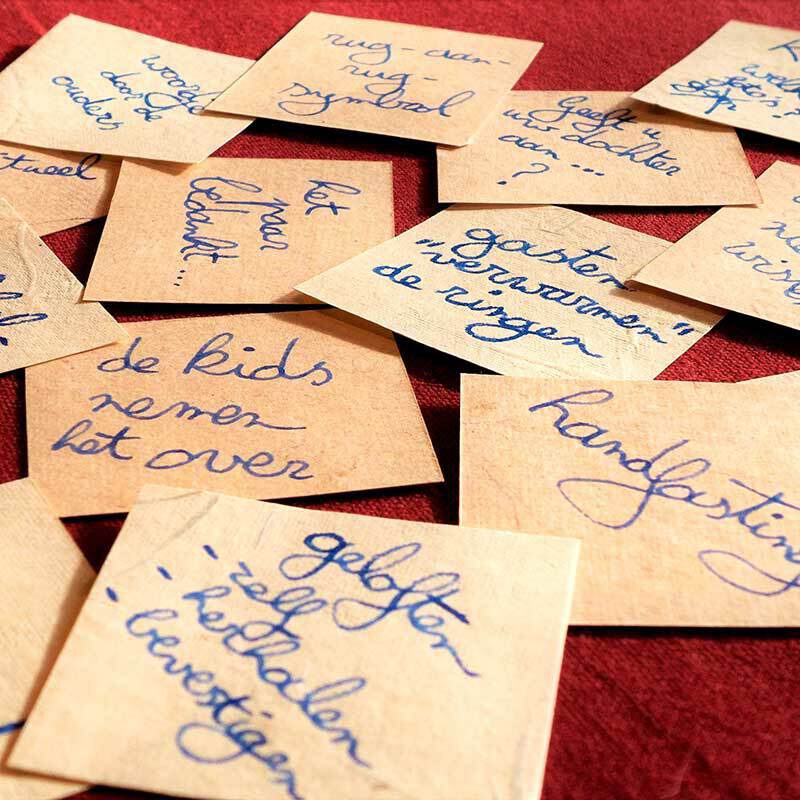 woord
door de
ouders
rug-aan-
rug-
symbool
Geeft u
uw dochter
aan...
?
het
paar
bedankt...
gasten
"verwarmen"
de ringen
de kids
nemen
het over
handfasting
geloften
- zelf
- herhalen
- bevestigen